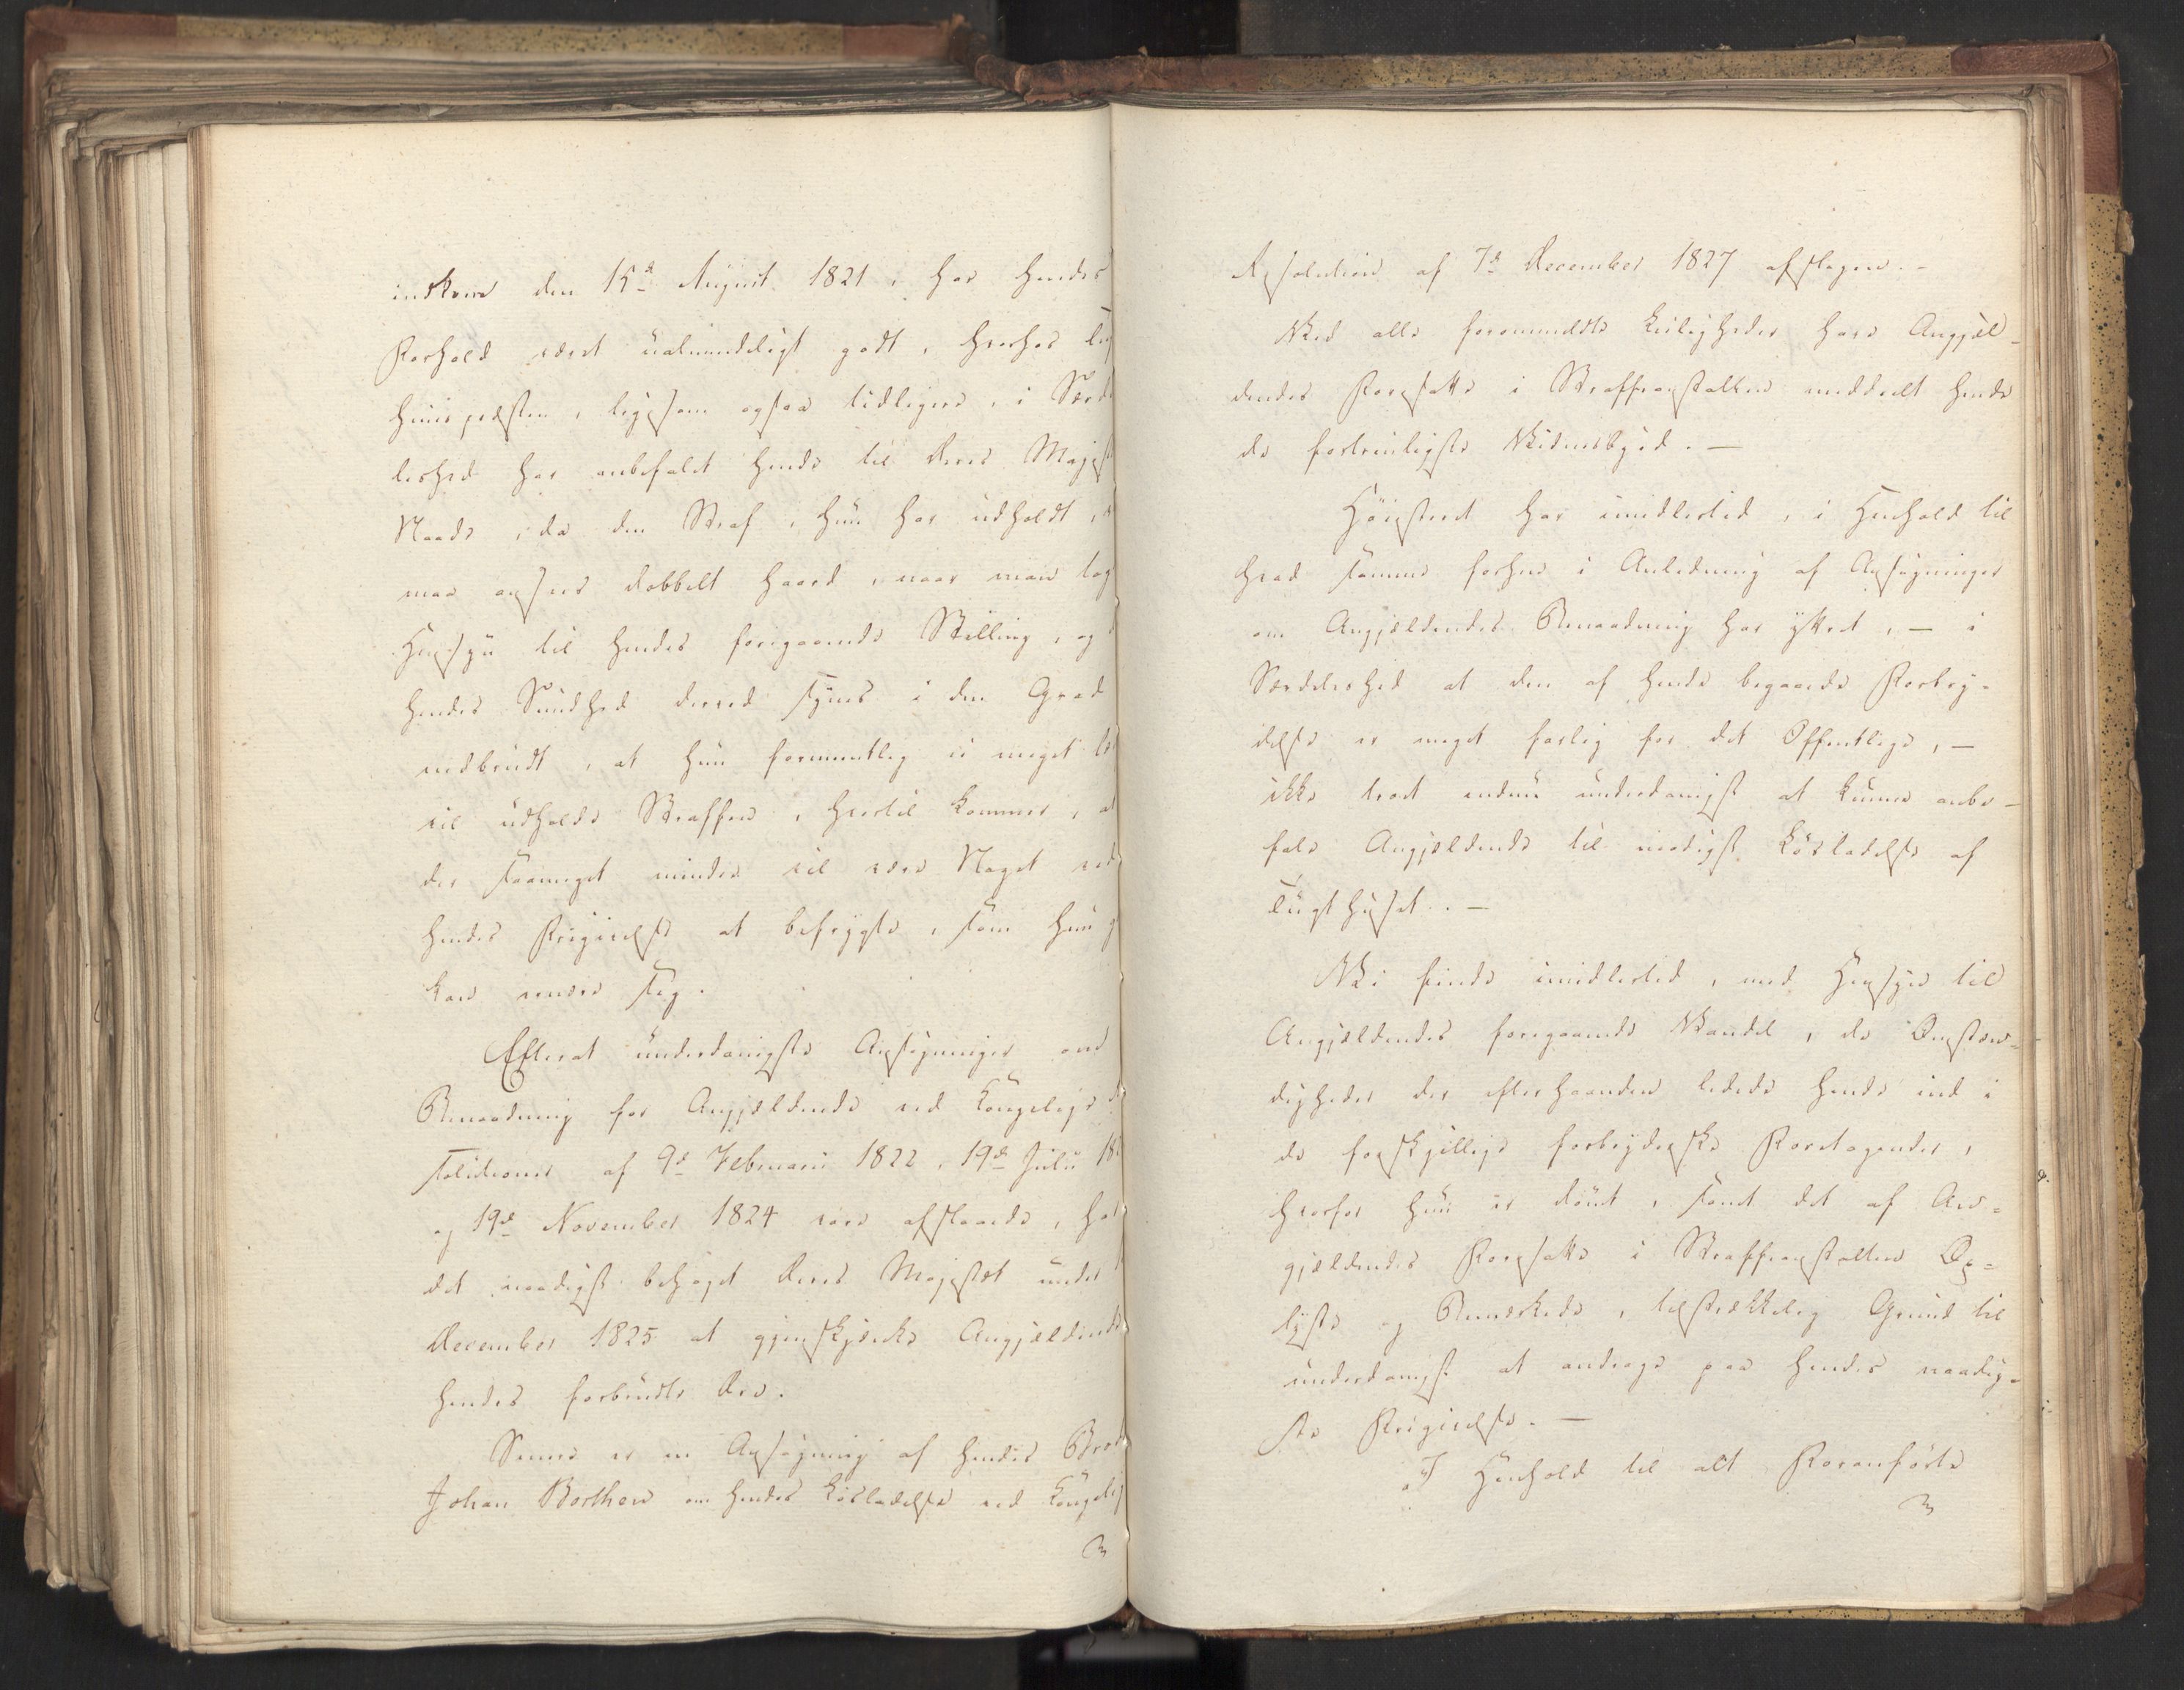 indkom den 15d August 1821, har hendes
Forhold været ualmindeligt godt, hvorhos
huuspræsten, ligesom ogsaa tidligere, i Særde
leshed har anbefalet hende til Deres Majest
Naade, da den Straf, hun har udholdt,
maa ansees dobbelt haard, naar man tag
Hensyn til hendes foregaaende Stilling, og
hendes Sundhed derved synes i den Grad
nedbrudt, at hun formentlig ei meget
vil udholde Straffen, hvortil kommer, at
der saameget mindre vil være Noget ved
hendes Frigivelse at befrygte, som hun
kan ernære sig.
Efterat underdanigste Ansøgninger om
Benaadning for Angjældende ved Kongelige
solutioner af 9d Februarii 1822, 19d Julii 18
og 19d November 1824 vare afslaaede, har
det naadigst behaget Deres Majestæt under
December 1825 at gjenskjænke Angjældende
hendes forbrudte Ære.
Senere er en Ansøgning af hendes Brod
Johan Borthen om hendes Løsladelse ved Kongelig
Resolution af 7d December 1827 afslagen. -
Ved alle foranmeldte Leiligheder have Angjæl-
dendes Foresatte i Straffeanstalten meddeelt hende
de fortrinligste Vidnesbyrd. -
Høiesteret har imidlertid, i Henhold til
hvad samme forhen i Anledning af Ansøgninger
om Angjældendes Benaadning har yttret, - i
Særdeleshed at den af hende begaaede Forbry-
delse er meget farlig for det Offentlige, -
ikke troet endnu underdanigst at kunne anbe-
fale Angjældende til naadigst Løsladelse af
Tugthuset. -
Vi finde imidlertid, med Hensyn til
Angjældendes foregaaende Vandel, de Omstæn-
digheder der efterhaanden ledede hende ind i
de forskjellige forbryderske Foretagender,
hvorfor hun er dømt, samt det af An-
gjældendes Foresatte i Straffeanstalten Op-
lyste og Bemærkede, tilstrækkelig Grund til
underdanigst at andrage paa hendes naadig-
ste Frigivelse. -
I Henhold til alt Foranførte